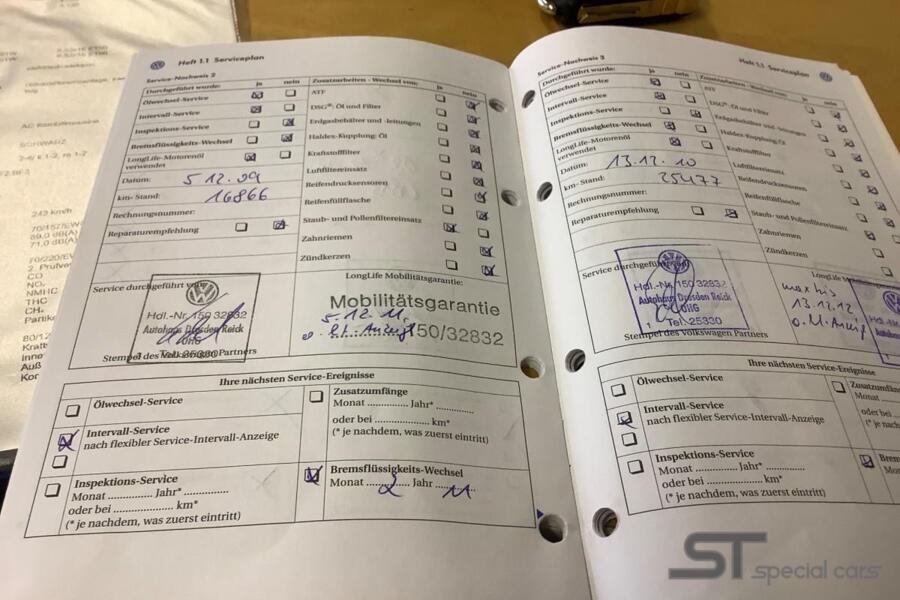 Heft 1.1 Serviceplan
Service-Nachweis 2
Durchgeführt wurde: ja nein
Ölwechsel-Service
Intervall-Service
Inspektions-Service
Bremsflüssigkeits-Wechsel
LongLife-Motorenöl
verwendet
Datum: 5 12.09
km- Stand: 16866
Rechnungsnummer:
Reparaturempfehlung
Zusatzarbeiten - Wechsel von: ja nein
ATF
DSG®: Öl und Filter
Erdgasbehälter und -leitungen
Haldex-Kupplung: Öl
Kraftstofffilter
Luftfiltereinsatz
Reifendrucksensoren
Reifenfüllflasche
Staub- und Pollenfiltereinsatz
Zahnriemen
Zündkerzen
Service durchgeführt von:
Hdl.-Nr. 150 32832
Autohaus Dresden Reick
OHG
Tel. 25330
Stempel des Volkswagen Partners
LongLife Mobilitätsgarantie:
Mobilitätsgarantie
5.12.11
150/32832
Ihre nächsten Service-Ereignisse
Ölwechsel-Service
Intervall-Service
nach flexibler Service-Intervall-Anzeige
Inspektions-Service
Monat ............... Jahr* ...............
oder bei .................... km*
(* je nachdem, was zuerst eintritt)
Zusatzumfänge
Monat ............. Jahr* .............
oder bei .................... km*
(* je nachdem, was zuerst eintritt)
Bremsflüssigkeits-Wechsel
Monat 2 Jahr 11
Heft 1.1 Serviceplan
Service-Nachweis 3
Durchgeführt wurde: ja nein
Ölwechsel-Service
Intervall-Service
Inspektions-Service
Bremsflüssigkeits-Wechsel
LongLife-Motorenöl
verwendet
Datum: 13.12.10
km- Stand: 25477
Rechnungsnummer:
Reparaturempfehlung
ATF
DSG®: Öl und Filter
Erdgasbehälter und -leitungen
Haldex-Kupplung: Öl
Kraftstofffilter
Luftfiltereinsatz
Reifendrucksensoren
Reifenfüllflasche
Staub- und Pollenfiltereinsatz
Zahnriemen
Zündkerzen
Service durchgeführt von:
Hdl.-Nr. 150 32832
Autohaus Dresden Reick
OHG
Tel. 25330
Stempel des Volkswagen Partners
13.12.12
Ihre nächsten Service-Ereignisse
Ölwechsel-Service
Intervall-Service
nach flexibler Service-Intervall-Anzeige
Inspektions-Service
Monat ............... Jahr* ...............
oder bei .................... km*
(* je nachdem, was zuerst eintritt)
Monat
oder bei
(* je nach
242 km/h
ST special cars